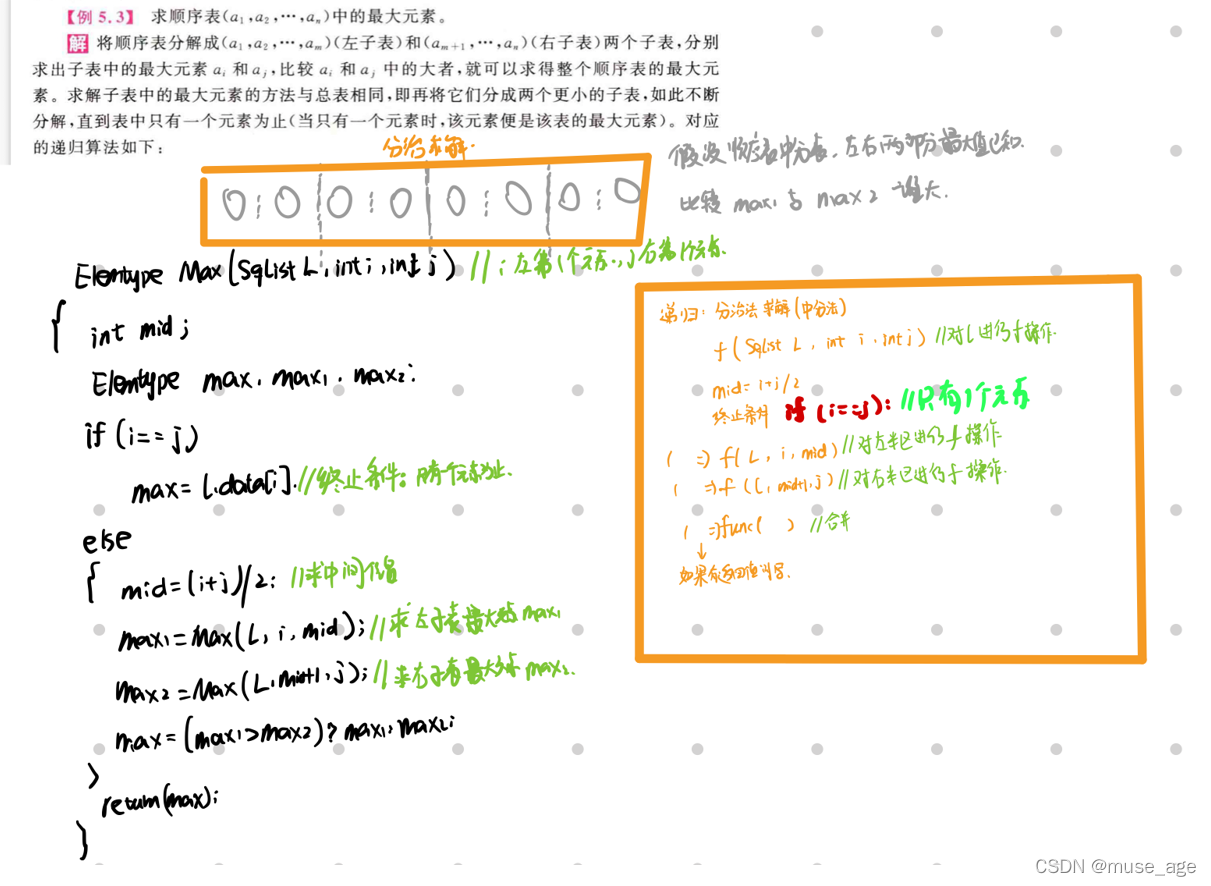 【例5.3】 求顺序表(a₁,a₂,…,aₙ)中的最大元素。
解 将顺序表分解成(a₁,a₂,…,aₘ)(左子表)和(aₘ₊₁,…,aₙ)(右子表)两个子表,分别
求出子表中的最大元素 aᵢ 和 aⱼ,比较 aᵢ 和 aⱼ 中的大者,就可以求得整个顺序表的最大元
素。求解子表中的最大元素的方法与总表相同,即再将它们分成两个更小的子表,如此不断
分解,直到表中只有一个元素为止(当只有一个元素时,该元素便是该表的最大元素)。对应
的递归算法如下:
分治求解.
假设顺序表中分表,左右两部分最大值已知.
比较 max1 与 max2 谁大.
0 0 0 0 0 0 0 0
Elemtype Max(SqList L, int i, int j) //i左第1个元素,j右第1个元素.
{
int mid;
Elemtype max, max1, max2;
if (i==j)
max= L.data[i]. //终止条件:
else
{ mid=(i+j)/2; //求中间位置
max1=Max(L, i, mid); //求左子表最大max1
max2=Max(L, mid+1, j); //求右子表最大max2.
max=(max1>max2)? max1, max2;
}
return(max);
}
递归: 分治法求解(中分法)
f(SqList L, int i, int j) //对L进行f操作.
mid= i+j/2
终止条件 if (i==j): //只有1个元素
( => f(L, i, mid) //对左半已进行f操作
( => f (L, mid+1, j) //对右半已进行f操作.
( => func( ) //合并
↓
如果有返回值
CSDN @muse_age